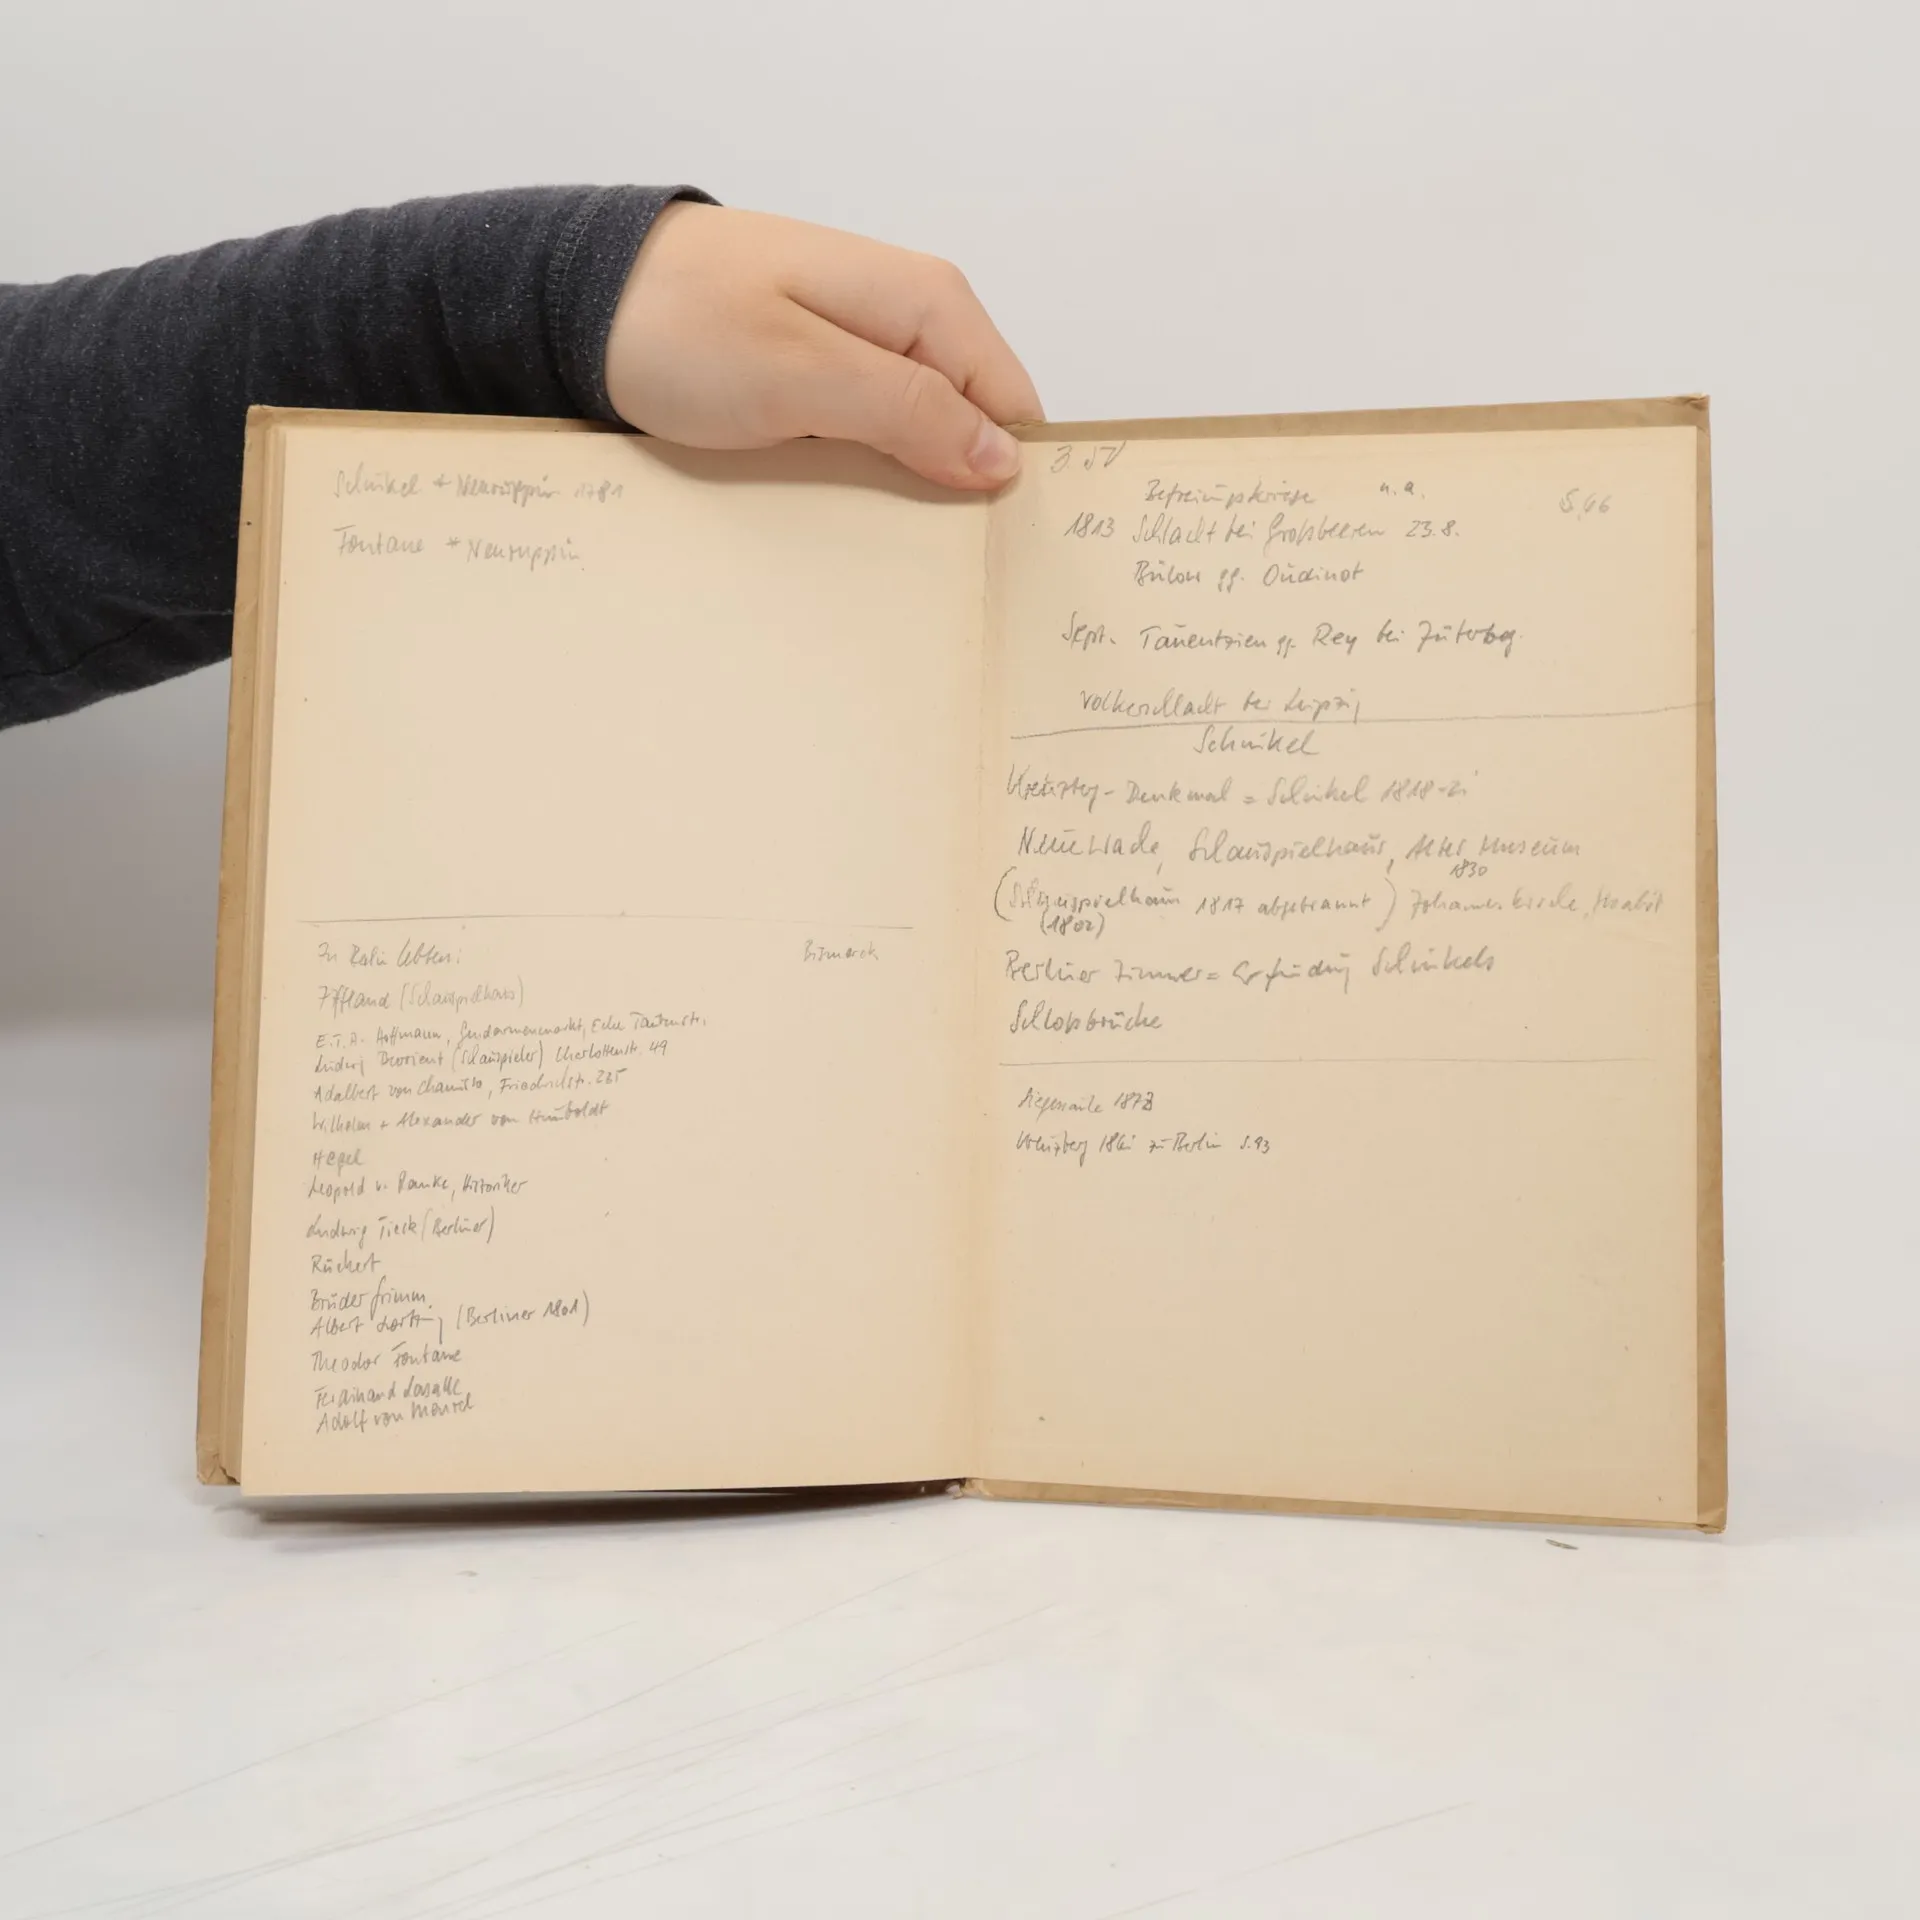 Schinkel * Neuruppin 1781
Fontane * Neuruppin
In Berlin lebten:
Bismarck
Iffland (Schauspielhaus)
E.T.A. Hoffmann, Gendarmenmarkt, Ecke Taubenstr.
Ludwig Devrient (Schauspieler) Charlottenstr. 49
Adalbert von Chamisso, Friedrichstr. 235
Wilhelm + Alexander von Humboldt
Hegel
Leopold v. Ranke, Historiker
Ludwig Tieck (Berliner)
Rückert
Brüder Grimm
Albert Lortzing (Berliner 1801)
Theodor Fontane
Ferdinand Lasalle
Adolf von Menzel
Befreiungskriege u. a.
S. 66
1813 Schlacht bei Großbeeren 23.8.
Bülow gg. Oudinot
Sept. Tauentzien gg. Rey bei Jüterbog.
Völkerschlacht bei Leipzig
Schinkel
Kreuzberg-Denkmal = Schinkel 1818-21
Neue Wache, Schauspielhaus, Altes Museum
1830
(Schauspielhaus 1817 abgebrannt) Johanneskirche, Moabit
(1802)
Berliner Zimmer = Erfindung Schinkels
Schloßbrücke
Siegessäule 1873
Kreuzberg 1861 zu Berlin S. 93